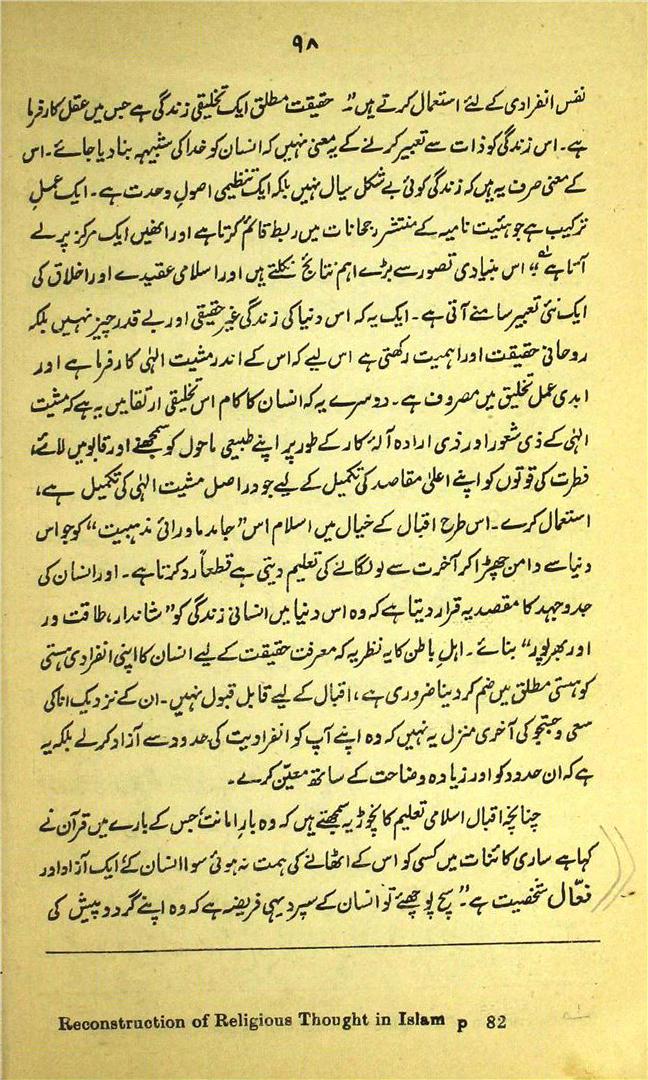 ۹۸
نفس انفرادی کے لئے استعمال کرتے ہیں"۔ حقیقت مطلق ایک تخلیقی زندگی ہے جس میں عقل کارفرما
ہے۔ اس زندگی کو ذات سے تعبیر کرنے کے یہ معنی نہیں کہ انسان کو خدا کی شبیہہ بنا دیا جائے۔ اس
کے معنی صرف یہ ہیں کہ زندگی کوئی بے شکل سیال نہیں بلکہ ایک تنظیمی اصولِ وحدت ہے۔ ایک عملِ
ترکیب ہے جو ہئیت نامیہ کے منتشر رجحانات میں ربط قائم کرتا ہے اور انھیں ایک مرکز پر لے
آتا ہے"۔ اس بنیادی تصور سے بڑے اہم نتائج نکلتے ہیں اور اسلامی عقیدے اور اخلاق کی
ایک نئی تعبیر سامنے آتی ہے۔ ایک یہ کہ اس دنیا کی زندگی غیر حقیقی اور بے قدر چیز نہیں بلکہ
روحانی حقیقت اور اہمیت رکھتی ہے اس لیے کہ اس کے اندر مشیت الہٰی کارفرما ہے اور
ابدی عمل تخلیق میں مصروف ہے۔ دوسرے یہ کہ انسان کا کام اس تخلیقی ارتقا میں یہ ہے کہ مشیت
الہٰی کے ذی شعور اور ذی ارادہ آلۂ کار کے طور پر اپنے طبیعی ماحول کو سمجھے اور قابو میں لائے،
فطرت کی قوتوں کو اپنے اعلیٰ مقاصد کی تکمیل کے لیے جو دراصل مشیت الہٰی کی تکمیل ہے،
استعمال کرے۔ اس طرح اقبال کے خیال میں اسلام اس "جامد ماورائی مذہبیت" کو جو اس
دنیا سے دامن چھڑا کر آخرت سے لو لگانے کی تعلیم دیتی ہے قطعاً رد کرتا ہے۔ اور انسان کی
جدوجہد کا مقصد یہ قرار دیتا ہے کہ وہ اس دنیا میں انسانی زندگی کو "شاندار، طاقت ور
اور بھرپور" بنائے۔ اہلِ باطن کا یہ نظریہ کہ معرفت حقیقت کے لیے انسان کا اپنی انفرادی ہستی
کو ہستی مطلق میں ضم کر دینا ضروری ہے، اقبال کے لیے قابل قبول نہیں۔ ان کے نزدیک انا کی
سعی و جستجو کی آخری منزل یہ نہیں کہ وہ اپنے آپ کو انفرادیت کی حدود سے آزاد کر لے بلکہ یہ
ہے کہ ان حدود کو اور زیادہ وضاحت کے ساتھ معیّن کرے۔
چنانچہ اقبال اسلامی تعلیم کا نچوڑ یہ سمجھتے ہیں کہ وہ بارِ امانت، جس کے بارے میں قرآن نے
کہا ہے ساری کائنات میں کسی کو اس کے اٹھانے کی ہمت نہ ہوئی سوا انسان کے ایک آزاد اور
فعّال شخصیت ہے"۔ سچ پوچھئے تو انسان کے سپرد یہی فریضہ ہے کہ وہ اپنے گرد و پیش کی
Reconstruction of Religious Thought in Islam p 82